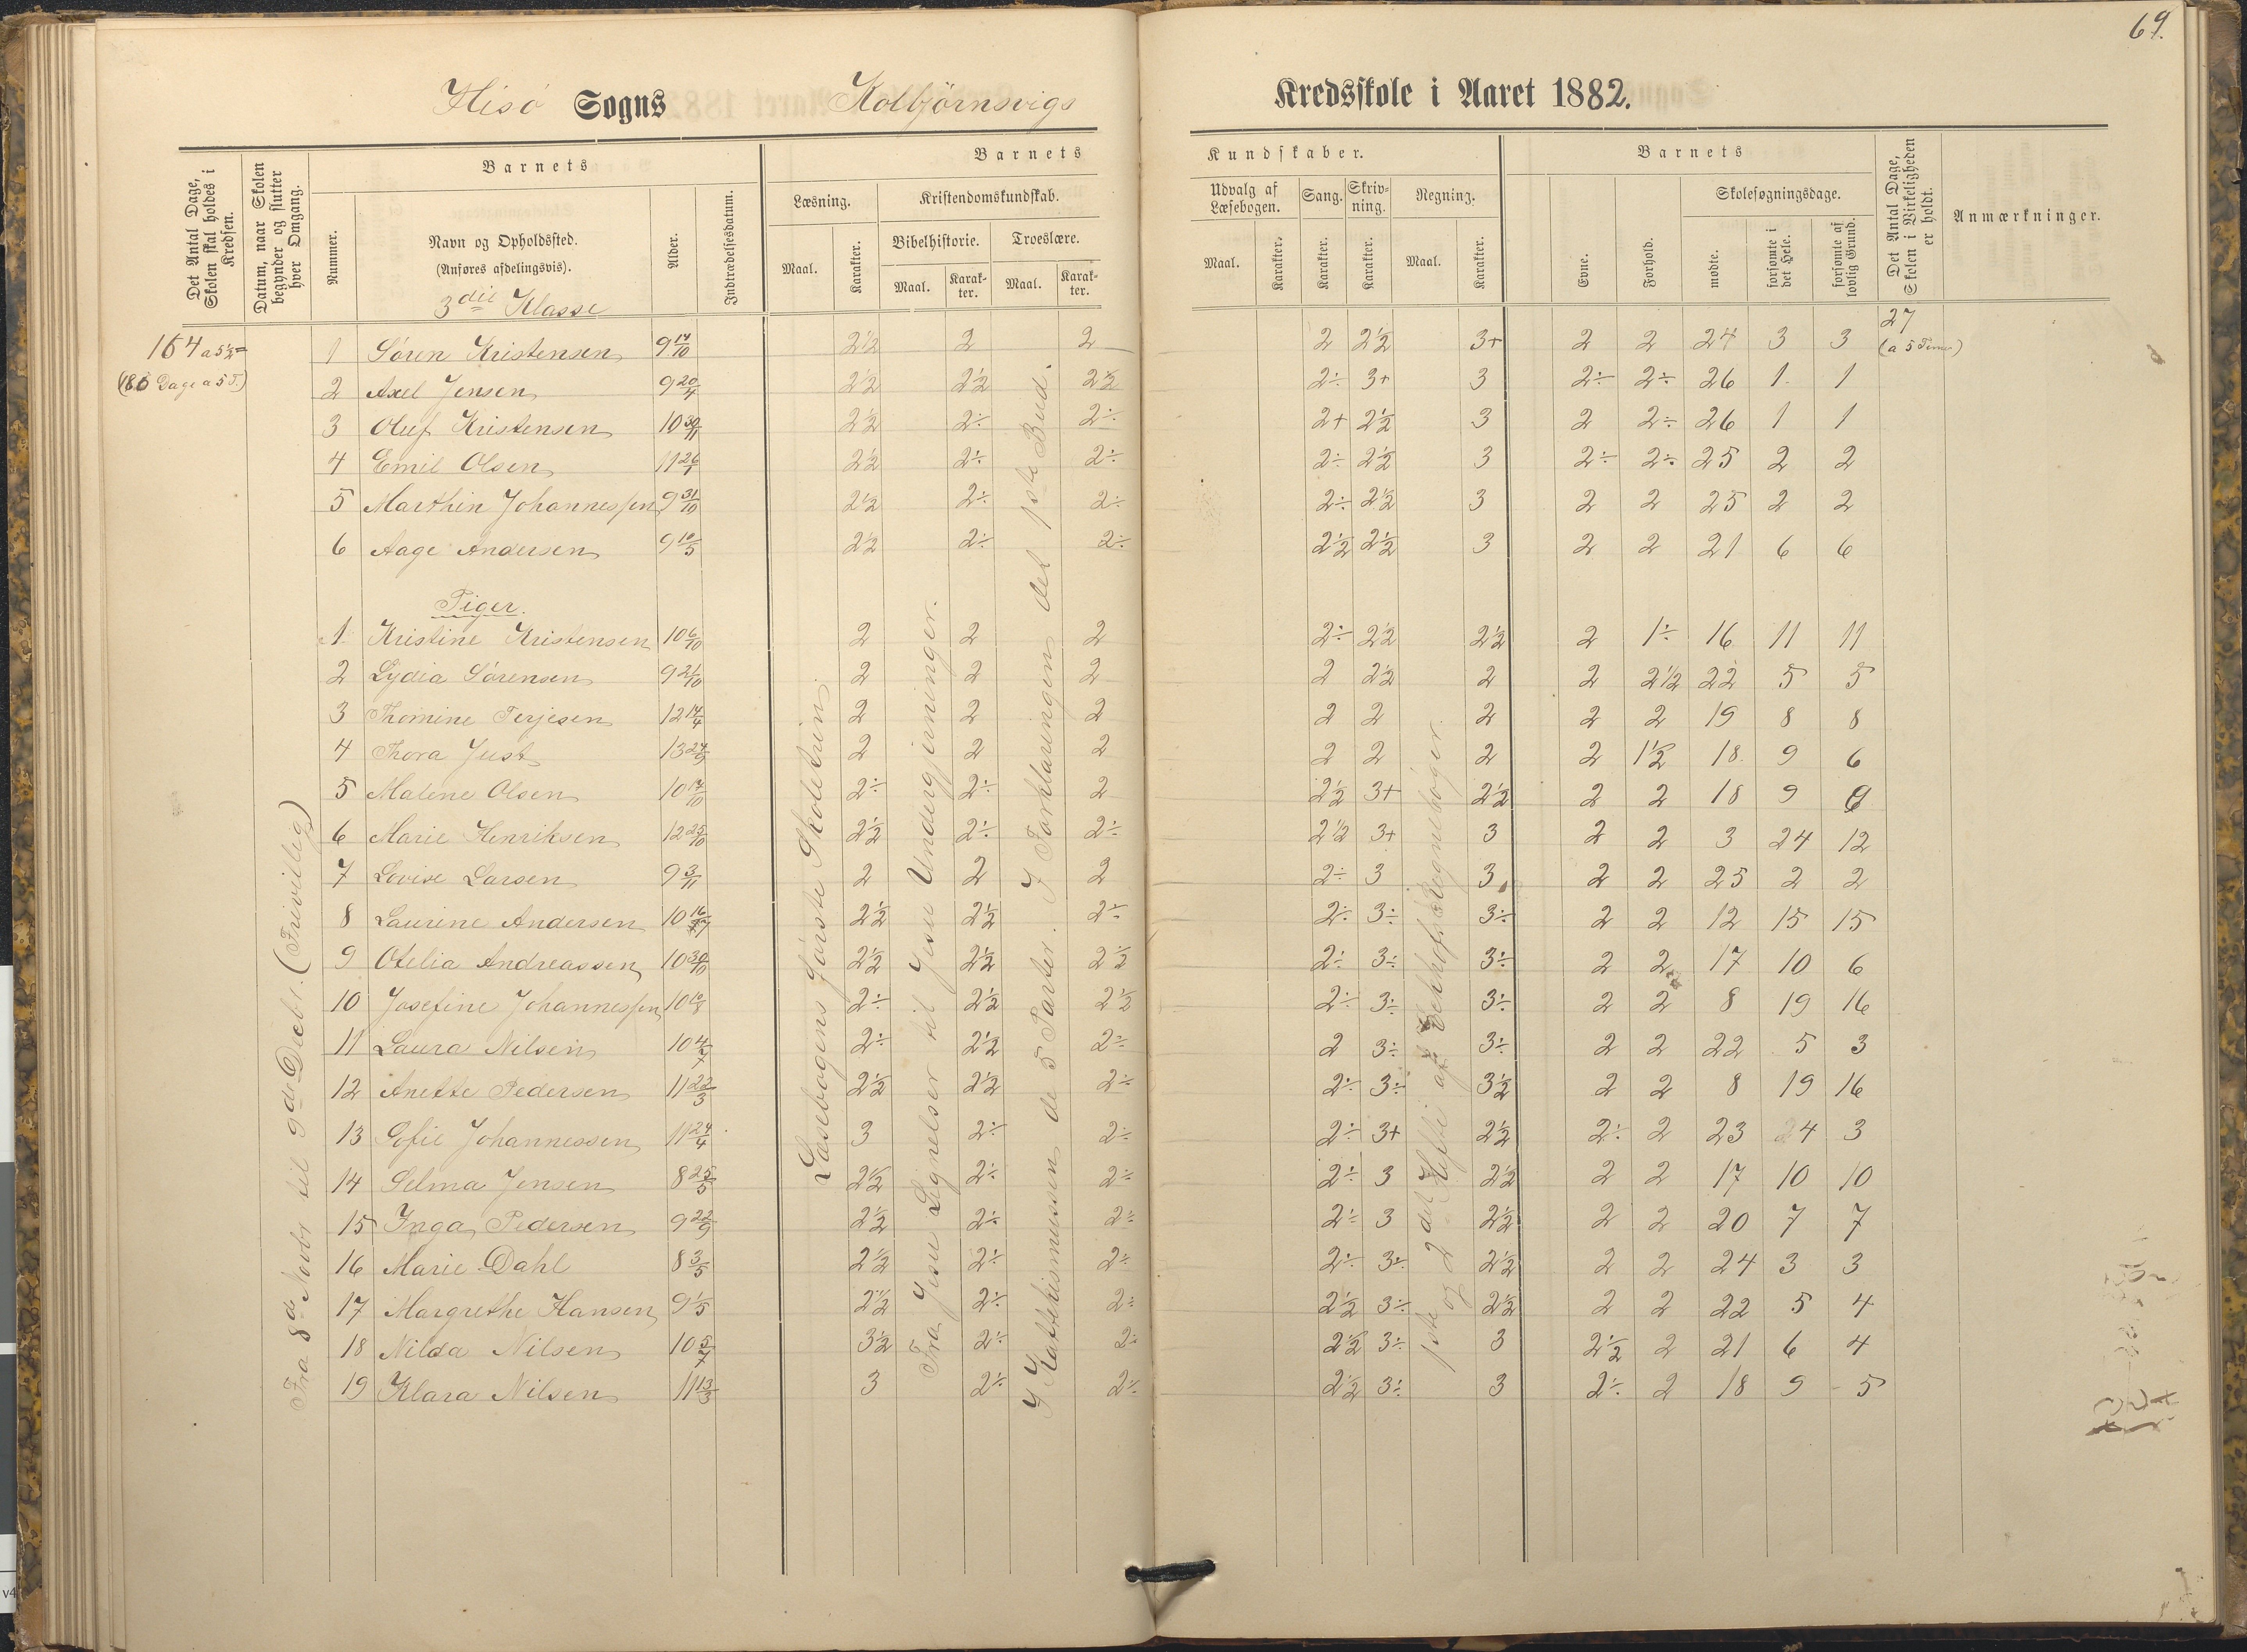 69.
Hisø Sogns Kolbjørnsvigs Kredsskole i Aaret 1882.
Det Antal Dage, Skolen skal holdes i Kredsen.
Datum, naar Skolen begynder og slutter hver Omgang.
Barnets
Nummer.
Navn og Opholdssted.
(Anføres afdelingsvis).
3die Klasse
Alder.
Indtrædelsesdatum.
Barnets Kundskaber.
Læsning.
Maal. Karakter.
Kristendomskundskab.
Bibelhistorie. Troeslære.
Maal. Karakter. Maal. Karakter.
Udvalg af Læsebogen.
Maal. Karakter.
Sang. Karakter.
Skrivning. Karakter.
Regning.
Maal. Karakter.
Barnets
Evne. Forhold.
Skolesøgningsdage.
mødte. forsømte i det Hele. forsømte af lovlig Grund.
Det Antal Dage, Skolen i Virkeligheden er holdt.
Anmærkninger.
164 a 5½ =
(186 Dage a 5 T.)
27
(a 5 Timer)
Fra 8de Novbr til 9de Decbr. (Frivillig)
Læsebogens første Skoletrin.
Fra Jesu Lignelser til Jesu Undergjerninger.
I Katekismussen de 5 Parter. I Forklaringen det 1ste Bud.
1ste og 2det Hefte af Regnebøger
1 Søren Kristensen 9 14/10 2½ 2 2 2 2½ 3+ 2 2 24 3 3
2 Axel Jensen 9 20/4 2½ 2½ 2½ 2÷ 3+ 3 2÷ 2÷ 26 1 1
3 Oluf Kristensen 10 30/11 2½ 2÷ 2÷ 2+ 2½ 3 2 2÷ 26 1 1
4 Emil Olsen 11 26/1 2½ 2÷ 2÷ 2÷ 2½ 3 2÷ 2÷ 25 2 2
5 Marthin Johannessen 9 31/10 2½ 2÷ 2÷ 2÷ 2½ 3 2 2 25 2 2
6 Aage Andersen 9 10/5 2½ 2÷ 2÷ 2½ 2½ 3 2 2 21 6 6
Piger.
1 Kristine Kristensen 10 6/10 2 2 2 2÷ 2½ 2½ 2 1÷ 16 11 11
2 Lydia Sørensen 9 21/10 2 2 2 2 2½ 2 2 2½ 22 5 5
3 Thomine Terjesen 12 14/4 2 2 2 2 2 2 2 2 19 8 8
4 Thora Just 13 24/9 2 2 2 2 2 2 2 1½ 18 9 6
5 Malene Olsen 10 17/10 2÷ 2÷ 2 2½ 3+ 2½ 2 2 18 9
6 Marie Henriksen 12 25/10 2½ 2÷ 2÷ 2½ 3+ 3 2 2 3 24 12
7 Lovise Larsen 9 3/11 2 2 2 2÷ 3 3 2 2 25 2 2
8 Laurine Andersen 10 16/7 2½ 2½ 2÷ 2÷ 3÷ 3÷ 2 2 12 15 15
9 Otelia Andreassen 10 30/10 2½ 2½ 2½ 2÷ 3÷ 3÷ 2 2 17 10 6
10 Josefine Johannessen 10 10/8 2÷ 2½ 2½ 2÷ 3÷ 3÷ 2 2 8 19 16
11 Laura Nilsen 10 4/7 2÷ 2½ 2÷ 2 3÷ 3÷ 2 2 22 5 3
12 Anette Pedersen 11 22/3 2½ 2½ 2÷ 2÷ 3÷ 3½ 2 2 8 19 16
13 Sofie Johannessen 11 24/4 3 2÷ 2÷ 2÷ 3+ 2½ 2÷ 2 23 4 3
14 Selma Jensen 8 25/5 2½ 2÷ 2÷ 2÷ 3 2½ 2 2 17 10 10
15 Inga Pedersen 9 22/9 2½ 2÷ 2÷ 2÷ 3 2½ 2 2 20 7 7
16 Marie Dahl 8 3/5 2½ 2÷ 2÷ 2÷ 3÷ 2½ 2 2 24 3 3
17 Margrethe Hansen 9 1/5 2½ 2÷ 2÷ 2½ 3÷ 2½ 2 2 22 5 4
18 Nilda Nilsen 10 5/7 3½ 2÷ 2÷ 2½ 3÷ 3 2½ 2 21 6 4
19 Klara Nilsen 11 13/3 3 2÷ 2÷ 2½ 3÷ 3 2÷ 2 18 9 5